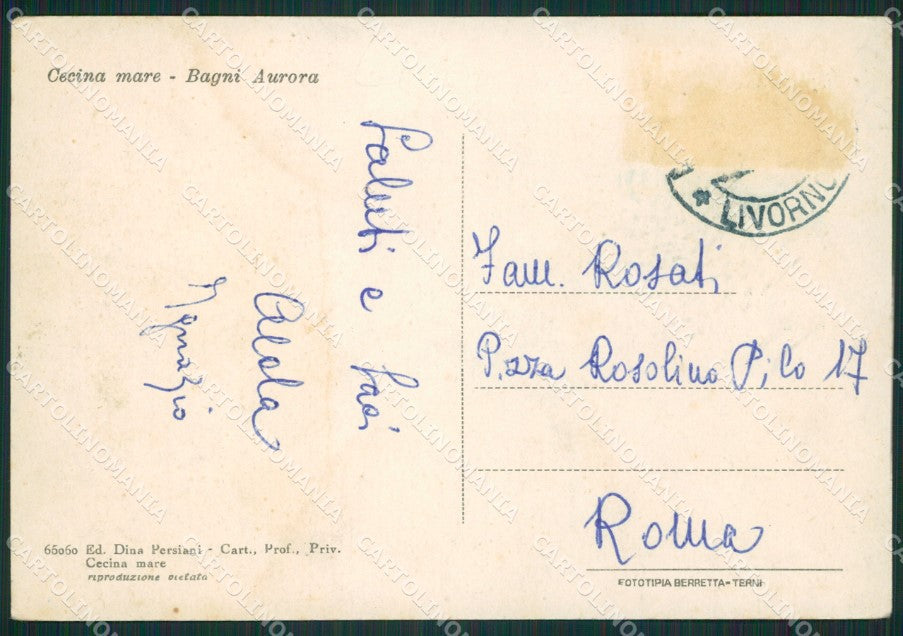 Cecina mare - Bagni Aurora
Saluti e baci
Alola
Ignazio
LIVORNO
Fam. Rosati
P.zza Rosolino Pilo 17
Roma
65060 Ed. Dina Persiani - Cart., Prof., Priv.
Cecina mare
riproduzione vietata
FOTOTIPIA BERRETTA-TERNI
CARTOLINOMANIA